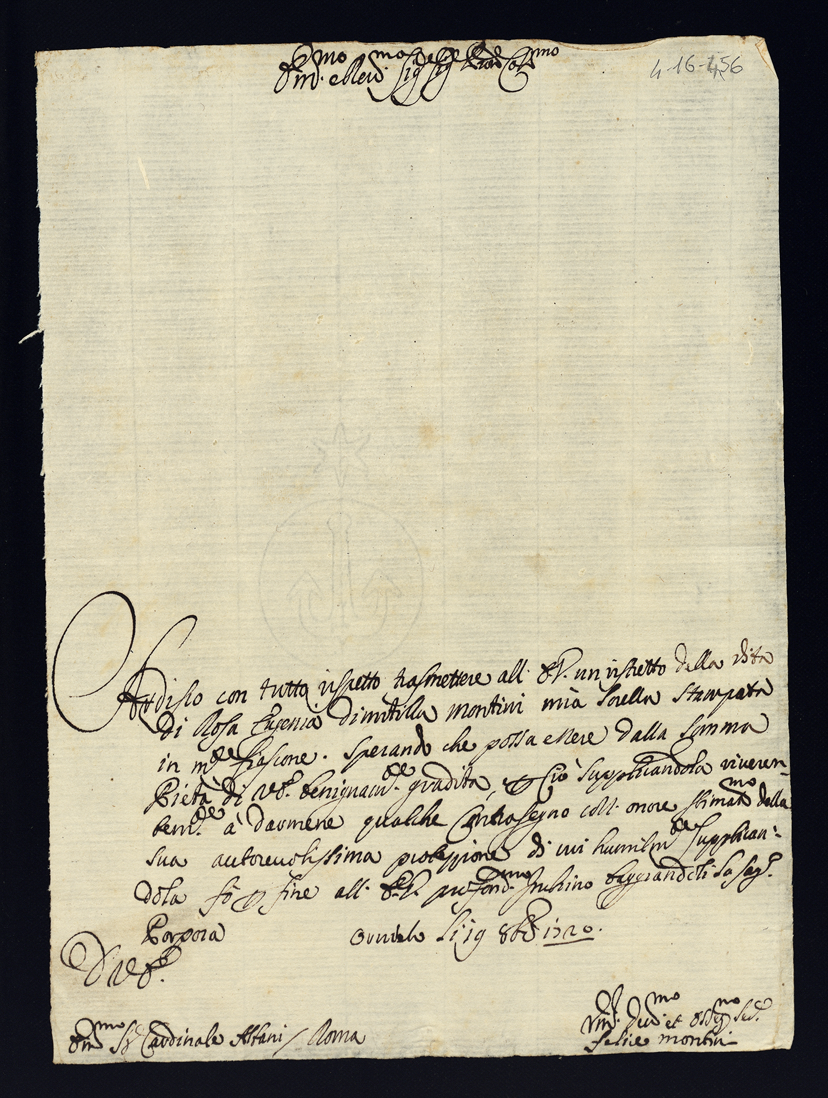 Em.mo e Rev.mo Sig.re Sig.re Pron Col.mo
4-16-456
Ardisco con tutto rispetto trasmettere all' E.V. un ristretto della vita
di Rosa Eugenia Dimitilla Montini mia Sorella Stampata
in m.te fiascone. Sperando che possa essere dalla Somma
Pietà di V.E. benignam.te gradita, e Ciò Supplicandola riveren-
tem.te à darmene qualche Contrasegno coll' onore stimat.mo della
sua autorevolissima protezzione di cui humilm.te Supplican-
dola fò p fine all' E.V. profond.mo Inchino baggiandoli La Sag.
Porpora
li 19 8bre 1720.
D V.E.
Em.mo Sr. Cardinale Albani / Roma
Vm. Dev.mo et Obblig.mo Ser.
felice montini